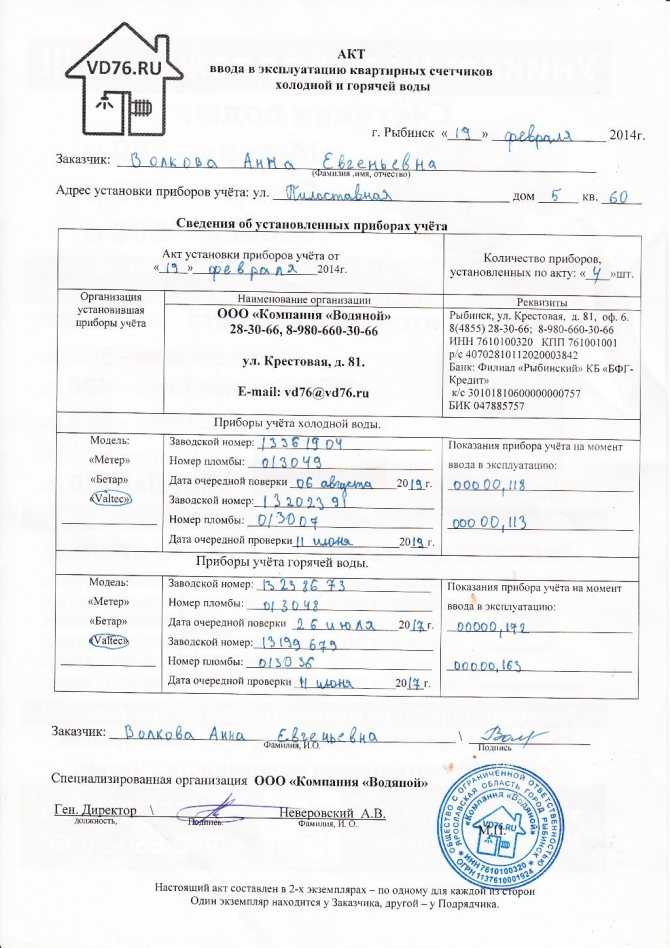 VD76.RU
АКТ
ввода в эксплуатацию квартирных счетчиков
холодной и горячей воды
г. Рыбинск «19» февраля 2014г.
Заказчик: Волкова Анна Евгеньевна
(Фамилия ,имя, отчество)
Адрес установки приборов учёта: ул. Пилоставная дом 5 кв. 60
Сведения об установленных приборах учёта
Акт установки приборов учёта от
«19» февраля 2014г.
Количество приборов,
установленных по акту: «4»шт.
Организация
установившая
приборы учёта
Наименование организации
ООО «Компания «Водяной»
28-30-66, 8-980-660-30-66
ул. Крестовая, д. 81.
E-mail: vd76@vd76.ru
Реквизиты
Рыбинск, ул. Крестовая, д. 81, оф. 6.
8(4855) 28-30-66; 8-980-660-30-66
ИНН 7610100320 КПП 761001001
р/с 40702810112020003842
Банк: Филиал «Рыбинский» КБ «БФГ-
Кредит»
к/с 30101810600000000757
БИК 047885757
Приборы учёта холодной воды.
Модель:
«Метер»
«Бетар»
«Valtec»
Заводской номер: 13361904
Номер пломбы: 013049
Дата очередной поверки 06 августа 2019г.
Заводской номер: 1320239
Номер пломбы: 013007
Дата очередной проверки 11 июня 2019г.
Показания прибора учёта на момент
ввода в эксплуатацию:
00000,118
00000,113
Приборы учёта горячей воды.
Модель:
«Метер»
«Бетар»
«Valtec»
Заводской номер: 13238673
Номер пломбы: 013048
Дата очередной поверки 26 июля 2017г.
Заводской номер: 13199679
Номер пломбы: 013036
Дата очередной проверки 11 июня 2017г.
Показания прибора учёта на момент
ввода в эксплуатацию:
00000,172
00000,163
Заказчик: Волкова Анна Евгеньевна \ Волк
Фамилия, И.О.
Подпись
Специализированная организация ООО «Компания «Водяной»
Ген. Директор \ Неверовский А.В.
должность,
Подпись
Фамилия, И. О.
М.П.
ОБЩЕСТВО С ОГРАНИЧЕННОЙ ОТВЕТСТВЕННОСТЬЮ
ЯРОСЛАВСКАЯ ОБЛАСТЬ ГОРОД РЫБИНСК
«Компания «Водяной»
VD76.RU
ИНН 7610100320
ОГРН 1137610001924
Настоящий акт составлен в 2-х экземплярах – по одному для каждой из сторон
Один экземпляр находится у Заказчика, другой – у Подрядчика.